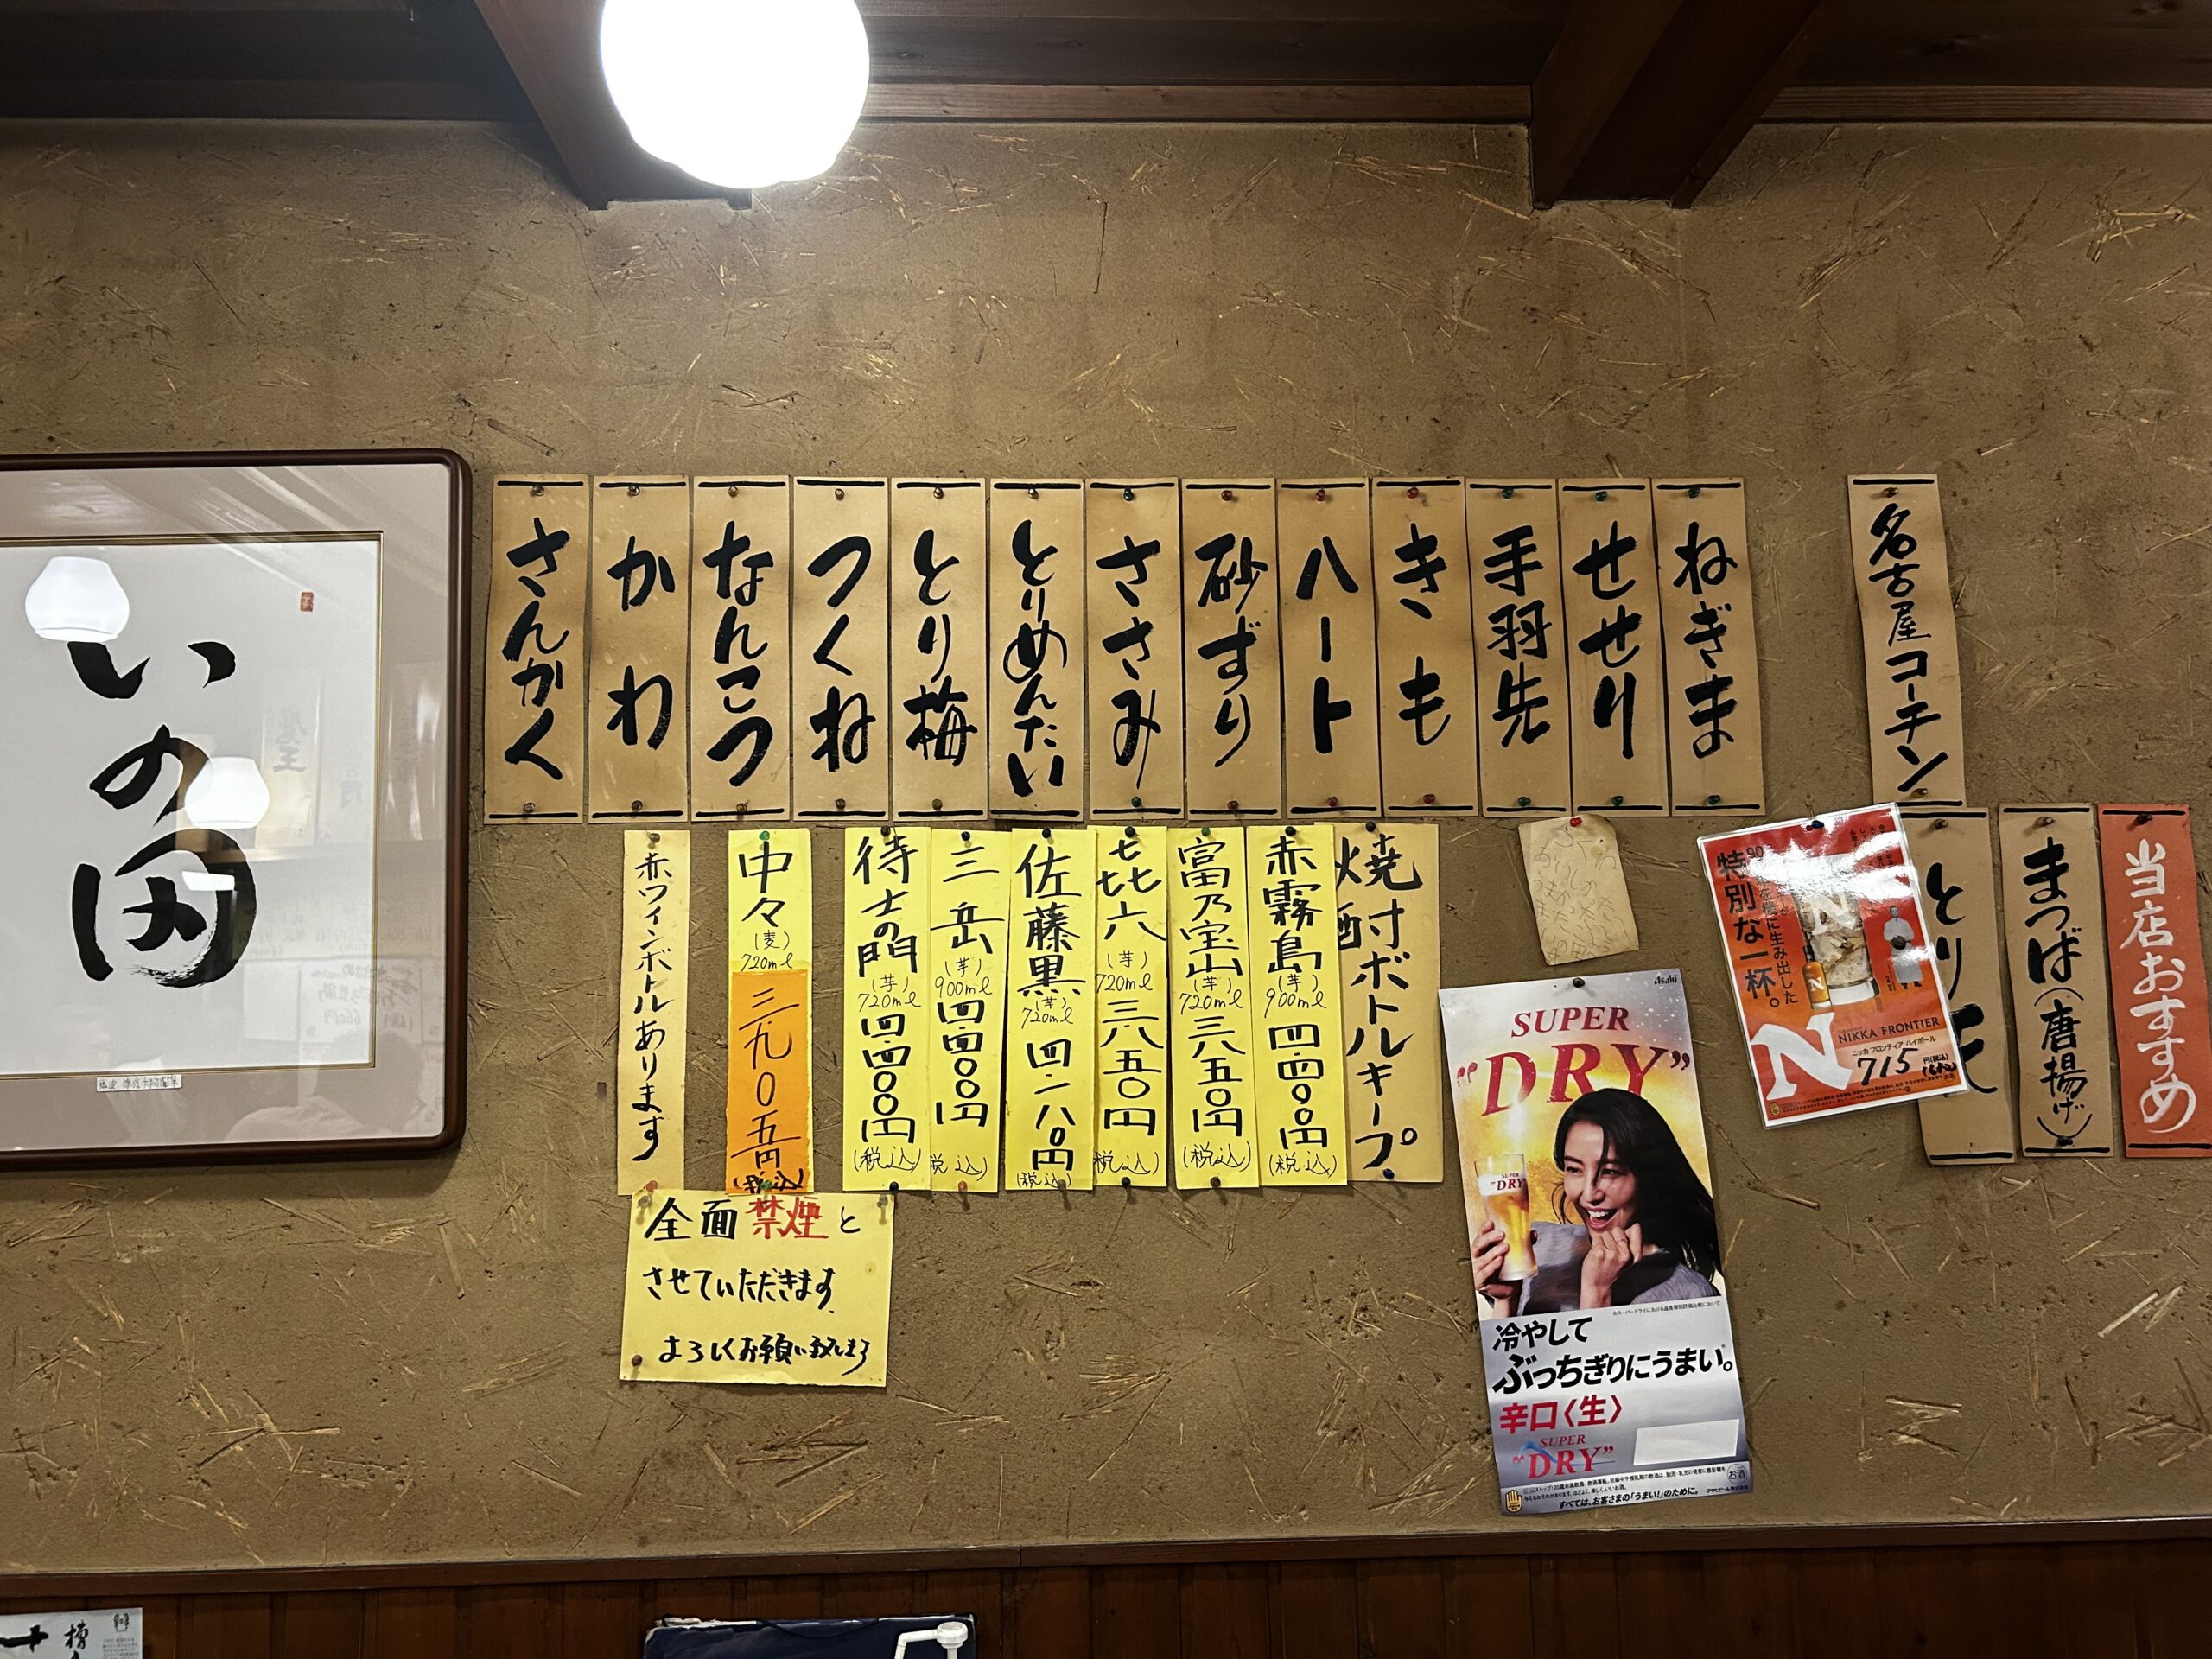 いの田
名古屋コーチン
ねぎま
せせり
手羽先
きも
ハート
砂ずり
ささみ
とりめんたい
とり梅
つくね
なんこつ
かわ
さんかく
当店おすすめ
まつば(唐揚げ)
とり天
特別な一杯。
に生み出した
N
NIKKA FRONTIER
ニッカ フロンティア ハイボール
715円(税込)
焼酎ボトルキープ
赤霧島(芋)900mℓ四.四〇〇円(税込)
富乃宝山(芋)720mℓ三八五〇円(税込)
㐂六(芋)720mℓ三八五〇円(税込)
佐藤黒(芋)720mℓ四.一八〇円(税込)
三岳(芋)900mℓ四.四〇〇円(税込)
侍士の門(芋)720mℓ四.四〇〇円(税込)
中々(麦)720mℓ三九〇五円(税込)
赤ワインボトルあります
全面禁煙と
させていただきます
よろしくお願い致します
Asahi
SUPER
"DRY"
SUPER
"DRY"
冷やして
ぶっちぎりにうまい。
辛口〈生〉
SUPER
"DRY"
お酒
すべては、お客さまの「うまい!」のために。
アサヒビール株式会社